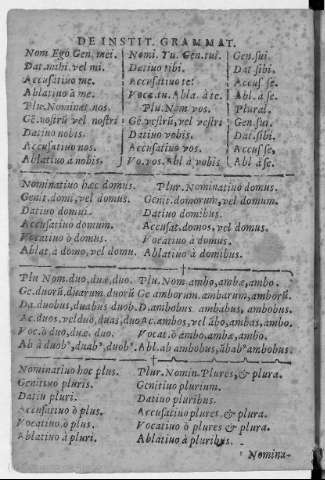 DE INSTIT. GRAMMAT.
Nom Ego. Gen. mei. Nomi. Tu. Gen. tui. Gen. sui.
Dat. mihi. vel mi. Datiuo tibi. Dat sibi.
Accusatiuo me. Accusatiuo te. Accus se.
Ablatiuo à me. Vocatiu. Abla. à te. Abl. à se.
Plu. Nominat. nos. Plu. Nom vos. Plural.
Gẽ. nostrũ vel nostri Gẽ vestrũ, vel vestri Gen. sui.
Datiuo nobis. Datiuo vobis. Dat. sibi.
Accusatiuo nos. Accusatiuo vos. Accus se,
Ablatiuo a nobis. Vo. vos. Abl à vobis Abl à se.
Nominatiuo hæc domus. Plur. Nominatiuo domus.
Genit. domi, vel domus. Genit. domorum, vel domum.
Datiuo domui. Datiuo domibus.
Accusatiuo domum. Accusat. domos, vel domus.
Vocatiuo ò domus. Vocatiuo à domus.
Ablat à domo, vel domu. Ablatiuo à domibus.
Plu Nom. duo, duæ, duo. Plu. Nom. ambo, ambæ, ambo.
Ge. duorũ, duarum duorũ Ge amborum. ambarum, amborũ.
Da. duobus, duabus duob. D. ambobus ambabus, ambobus.
Ac. duos, vel duo, duas, duo Ac. ambos, vel ãbo, ambas, ambo.
Voc. ò duo, duæ, duo. Voc. ò ambo, ambæ, ambo.
Ab à duobˢ, duabˢ, duobˢ. Abl. ab ambobus, ãbabˢ ambobus.
Nominatiuo hoc plus. Plur. Nomin. Plures, & plura.
Genitiuo pluris. Genitiuo plurium.
Datiu pluri. Datiuo pluribus.
Accusatiuo plus. Accusatiuo plures, & plura.
Vocatiuo. ò plus. Vocatiuo ò plures & plura.
Ablatiuo à pluri. Ablatiuo à pluribus.
Nomina-